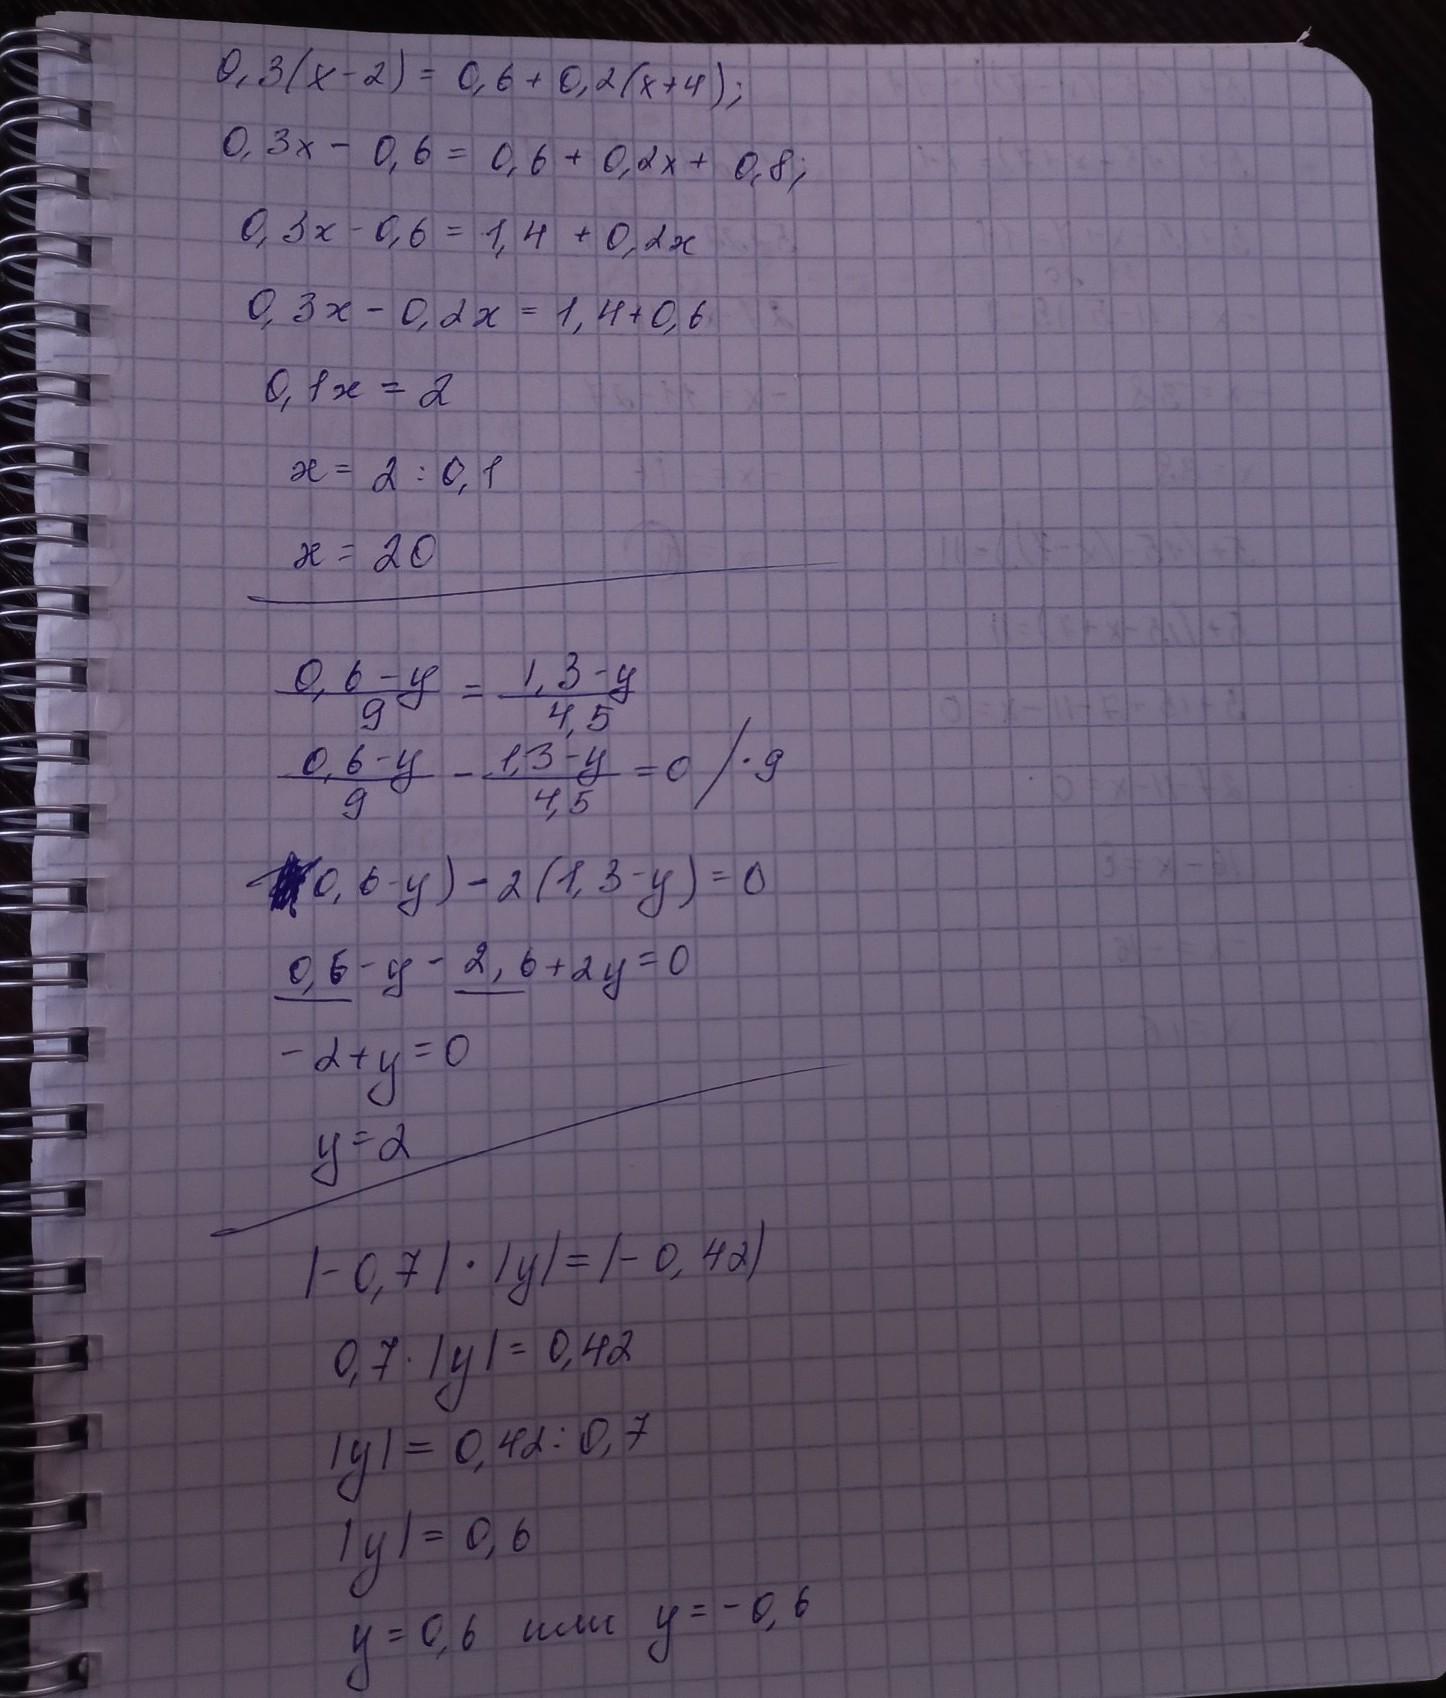 0,3(x-2) = 0,6 + 0,2(x+4);
0,3x - 0,6 = 0,6 + 0,2x + 0,8;
0,3x - 0,6 = 1,4 + 0,2x
0,3x - 0,2x = 1,4 + 0,6
0,1x = 2
x = 2 : 0,1
x = 20
(0,6 - y)/9 = (1,3 - y)/4,5
(0,6 - y)/9 - (1,3 - y)/4,5 = 0 /·9
(0,6 - y) - 2(1,3 - y) = 0
0,6 - y - 2,6 + 2y = 0
-2 + y = 0
y = 2
|-0,7| · |y| = |-0,42|
0,7 · |y| = 0,42
|y| = 0,42 : 0,7
|y| = 0,6
y = 0,6 или y = -0,6